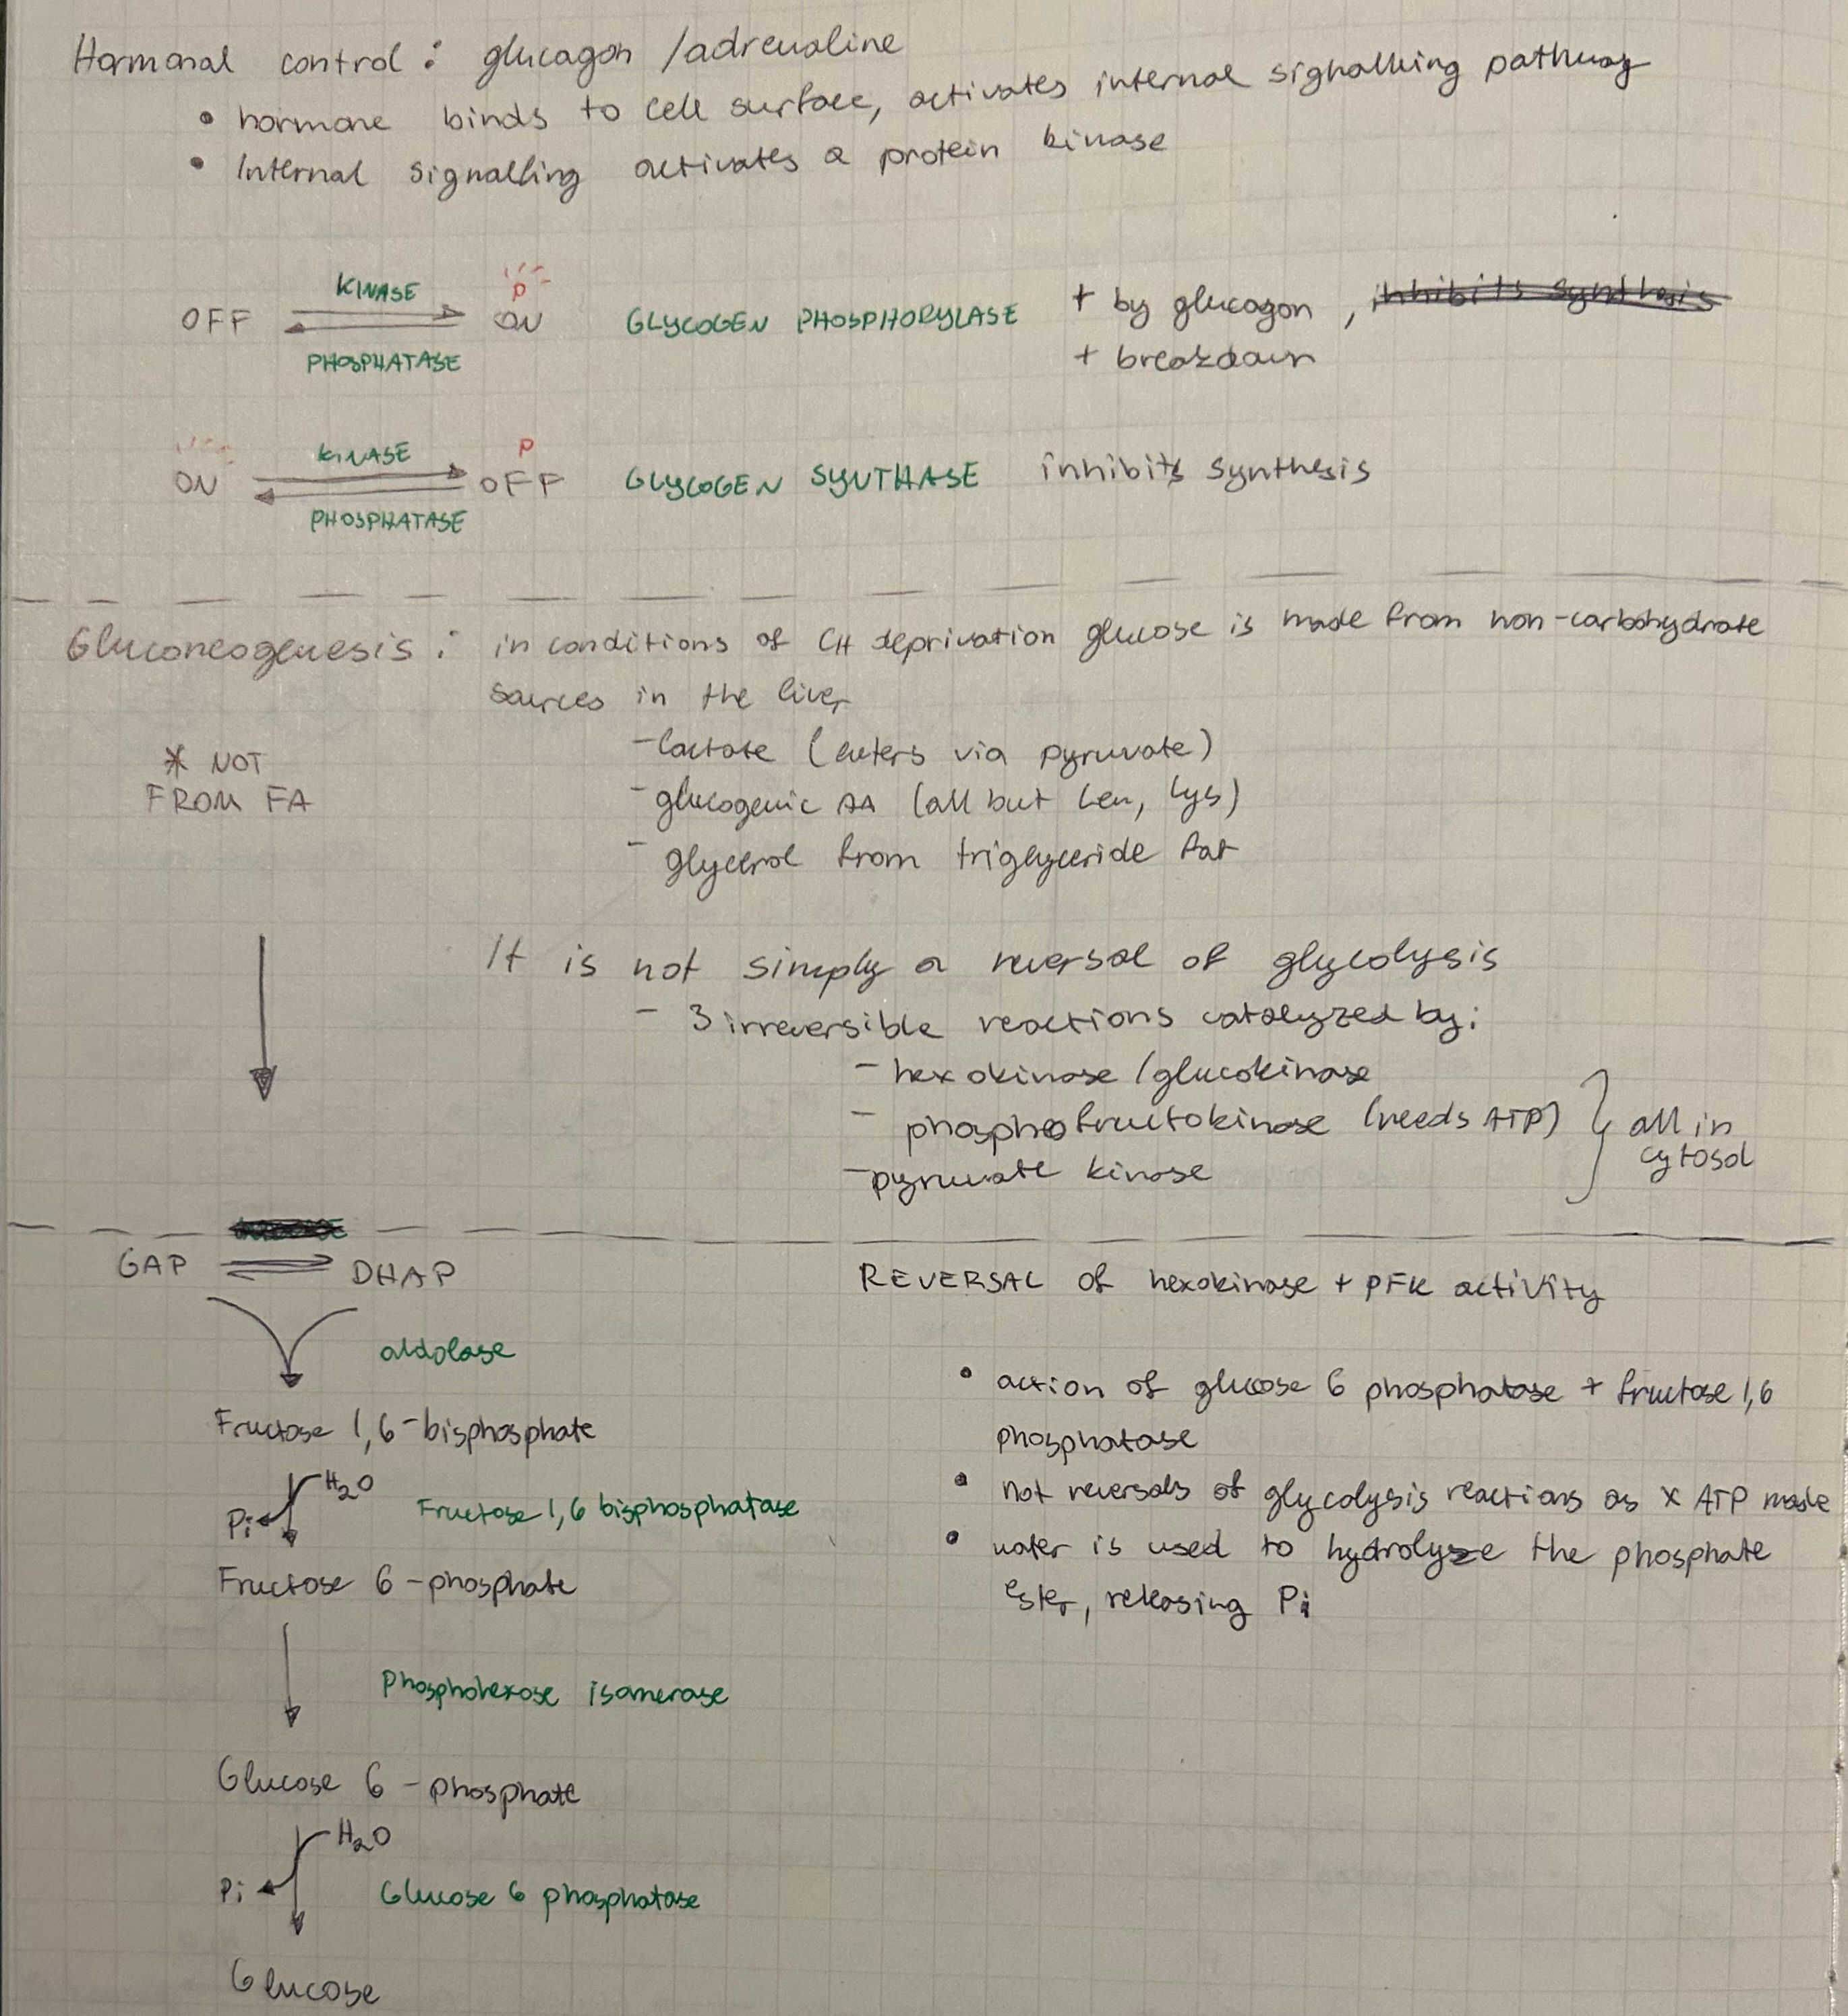 Hormonal control : glucagon / adrenaline
• hormone binds to cell surface, activates internal signalling pathway
• Internal signalling activates a protein kinase
KINASE
P
OFF
ON
GLYCOGEN PHOSPHORYLASE
+ by glucagon , inhibits synthesis
PHOSPHATASE
+ breakdown
KINASE
P
ON
OFF
GLYCOGEN SYNTHASE
inhibits synthesis
PHOSPHATASE
Gluconeogenesis : in conditions of CH deprivation glucose is made from non-carbohydrate
sources in the liver
- lactate (enters via pyruvate)
* NOT
FROM FA
- glucogenic AA (all but Leu, Lys)
- glycerol from triglyceride fat
It is not simply a reversal of glycolysis
- 3 irreversible reactions catalyzed by:
- hexokinase / glucokinase
- phosphofructokinase (needs ATP)
- pyruvate kinase
} all in
cytosol
GAP
DHAP
REVERSAL of hexokinase + PFK activity
aldolase
• action of glucose 6 phosphatase + fructose 1,6
phosphatase
Fructose 1,6-bisphosphate
H2O
• not reversals of glycolysis reactions as x ATP made
Pi
Fructose 1,6 bisphosphatase
• water is used to hydrolyze the phosphate
ester, releasing Pi
Fructose 6-phosphate
Phosphohexose isomerase
Glucose 6-phosphate
H2O
Pi
Glucose 6 phosphatase
Glucose